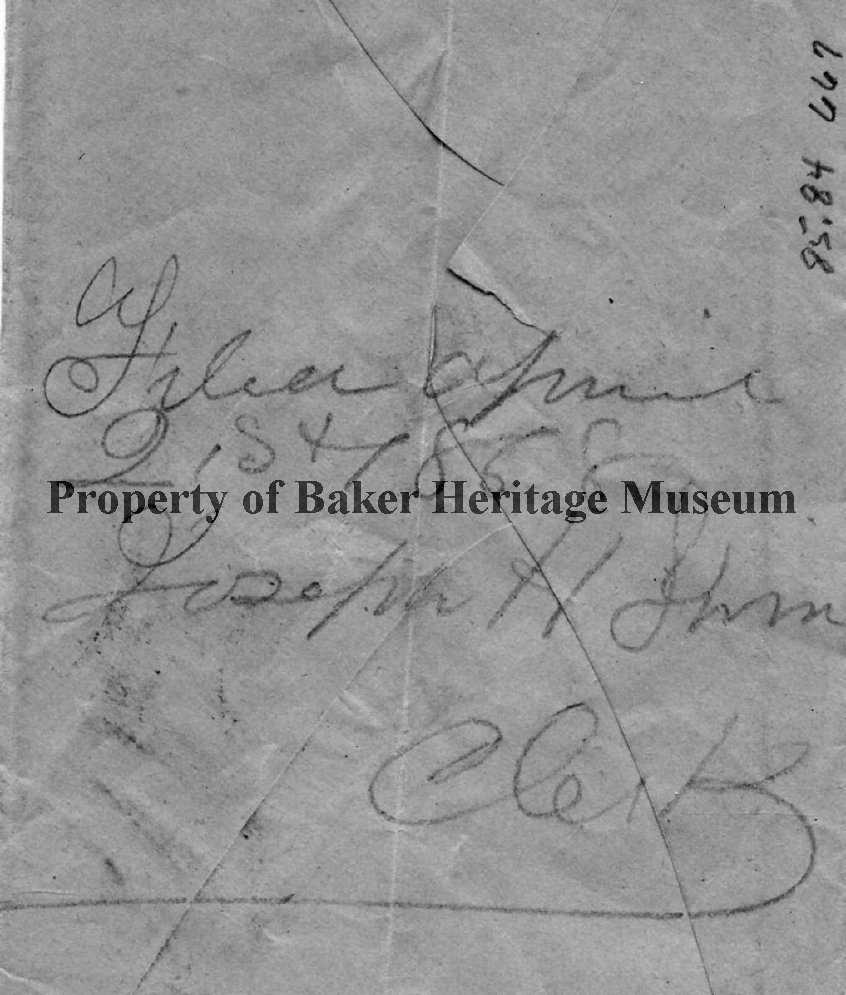 85.84 667
Filed April
21st 1868
Property of Baker Heritage Museum
Joseph H Shinn
Clerk